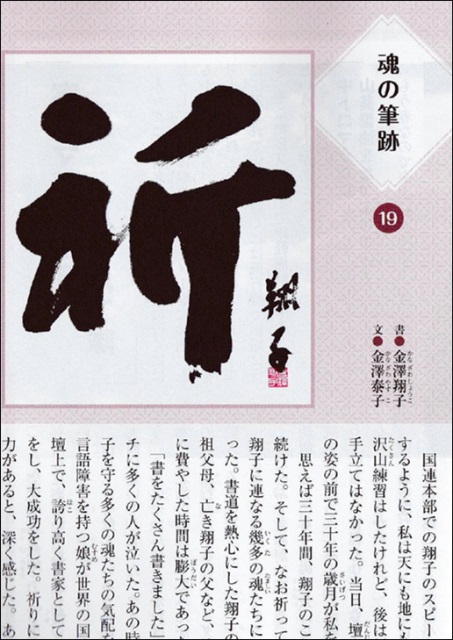 魂の筆跡
19
祈
翔子
書●金澤翔子
かなざわしょうこ
文●金澤泰子
かなざわやすこ
国連本部での翔子のスピー
するように、私は天にも地に
沢山練習はしたけれど、後は
たくさん
手立てはなかった。当日、壇
だん
の姿の前で三十年の歳月が私を
さいげつ
思えば三十年間、翔子のこ
続けた。そして、なお祈って
翔子に連なる幾多の魂たちに
いくた
たましい
った。書道を熱心にした翔子の
祖父母、亡き翔子の父など、
な
に費やした時間は膨大であっ
ぼうだい
「書をたくさん書きました」
チに多くの人が泣いた。あの時
子を守る多くの魂たちの気配を
言語障害を持つ娘が世界の国
むすめ
壇上で、誇り高く書家として
ほこ
をし、大成功をした。祈りに
力があると、深く感じた。あ